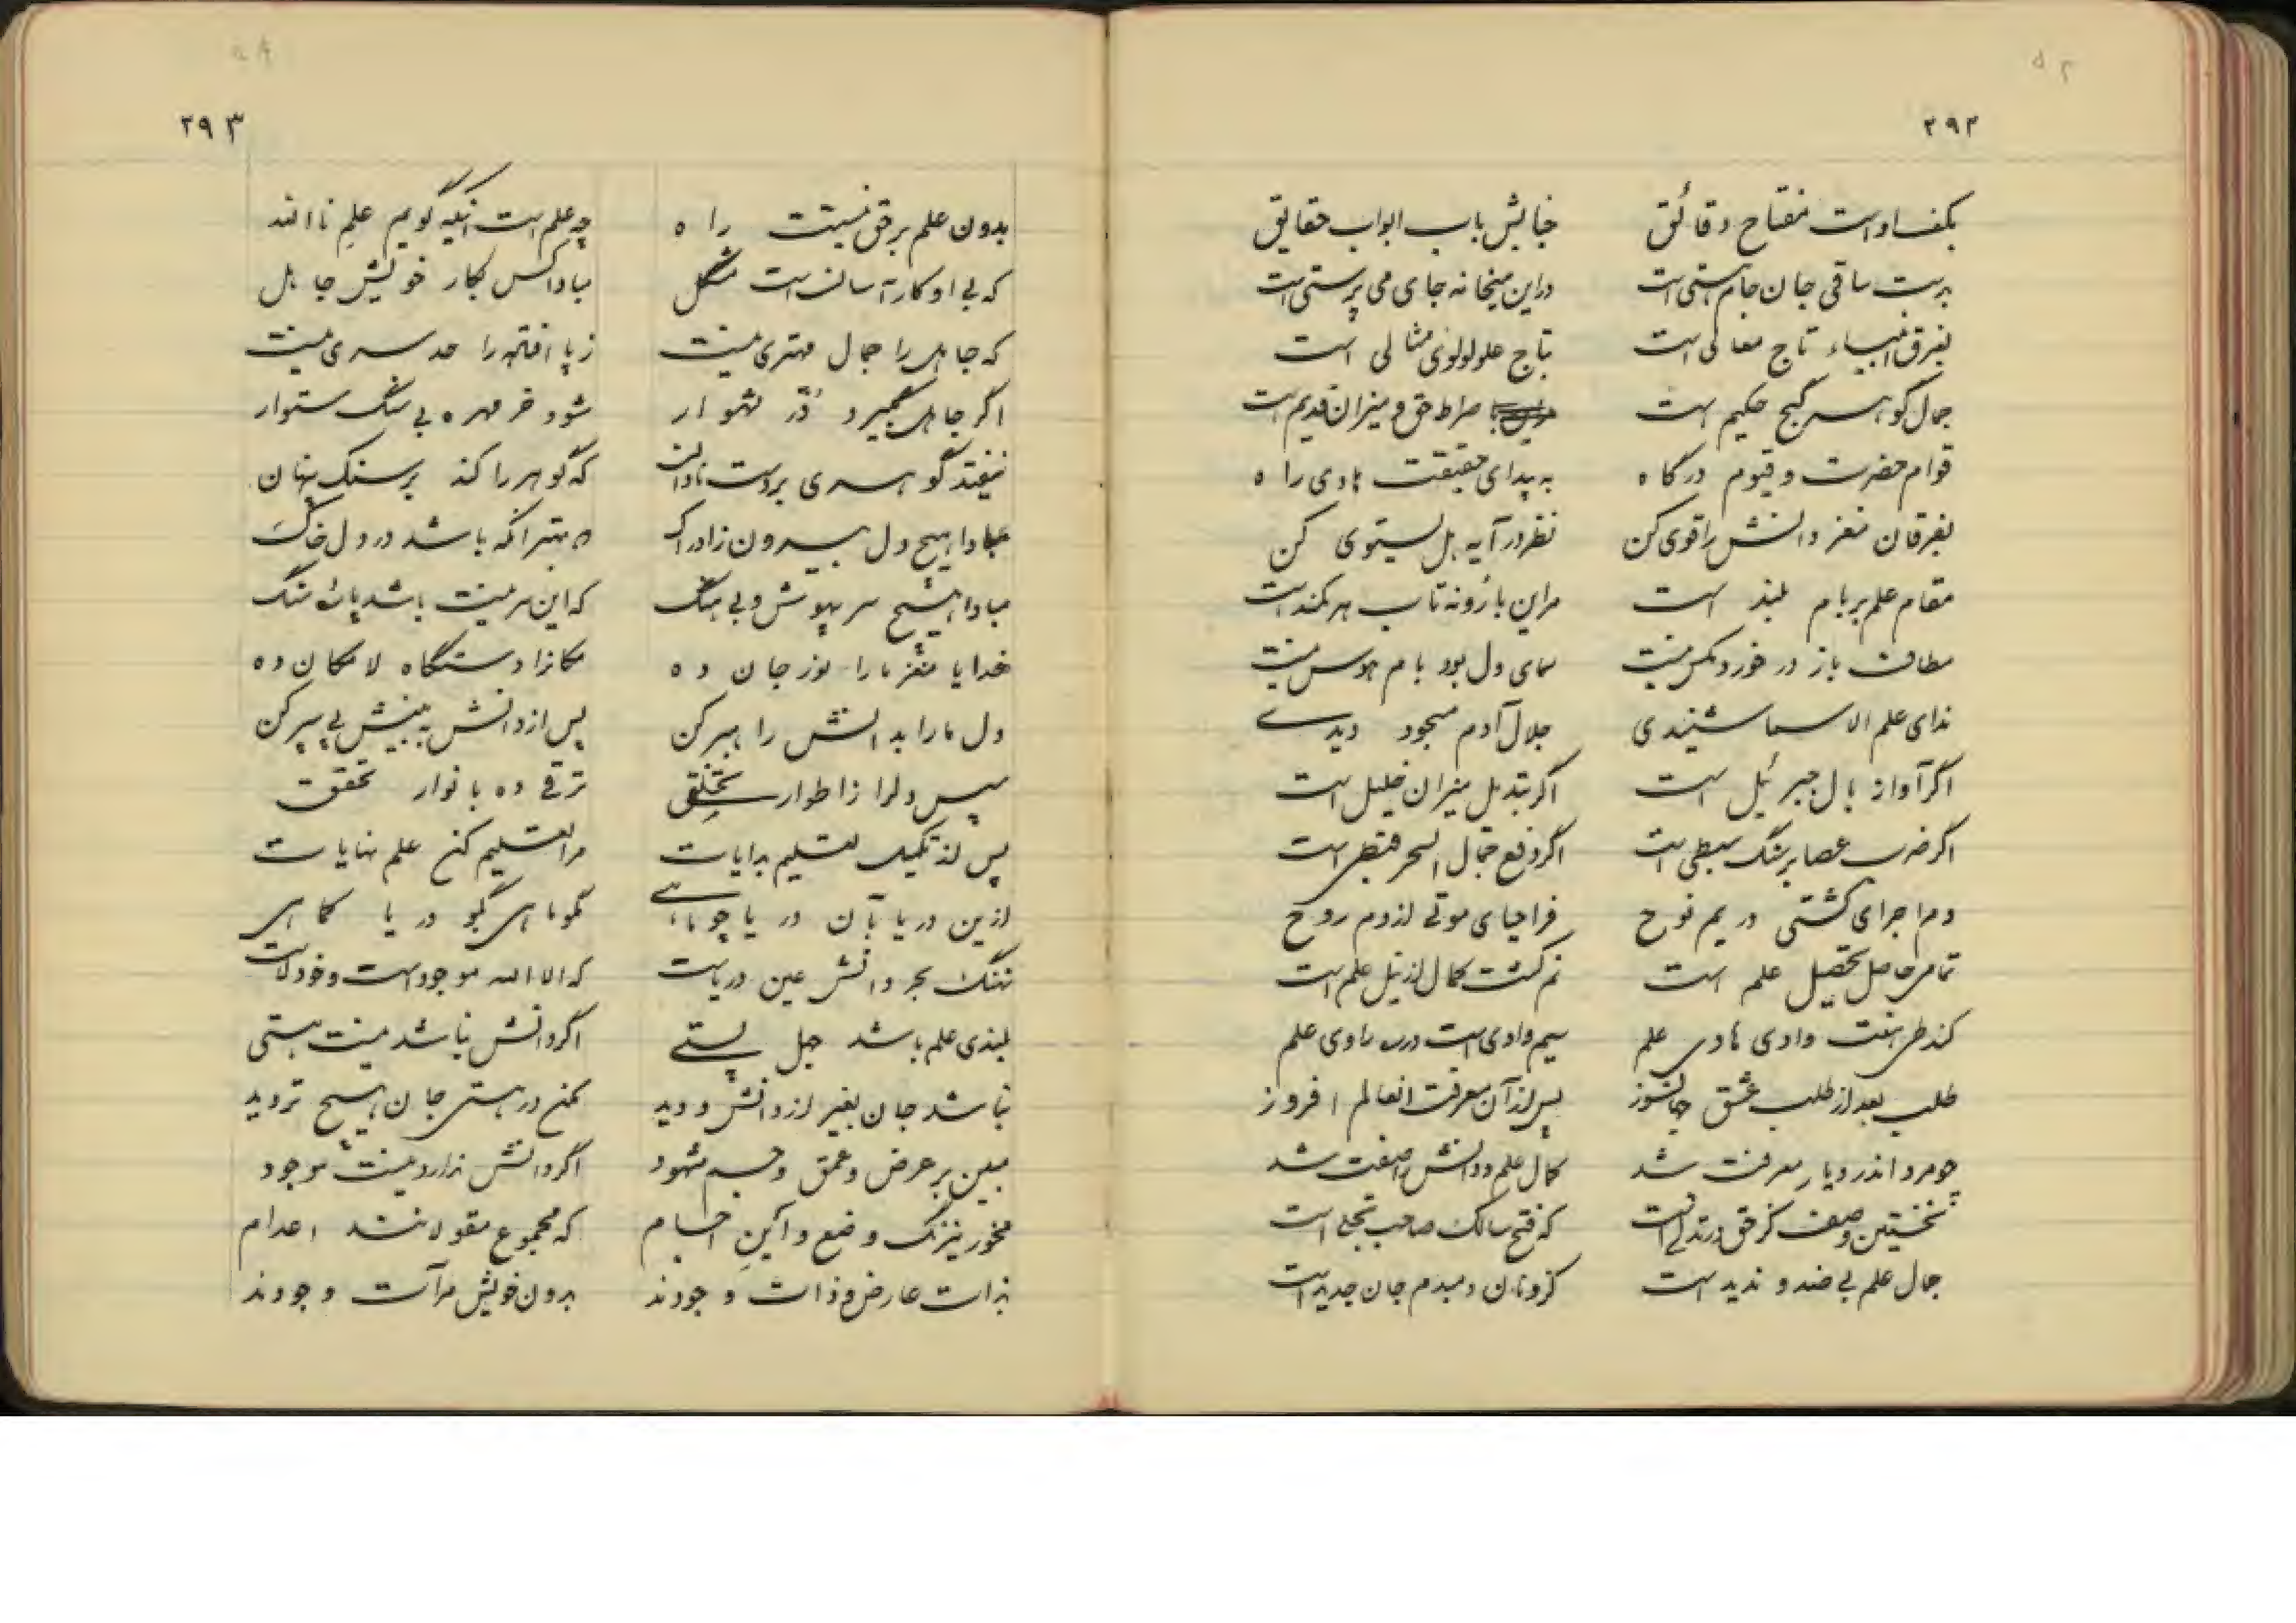 ۲۹۲
بکف او است مفتاح دقائق خیالش باب ابواب حقایق
بدست ساقی جان جام هستی است در این میخانه جای می پرستی است
بفرق انبیاء تاج معالی است بتاج علو لولوی مثالی است
جمال گوهر گنج حکیم است صراط حق و میزان قدیم است
قوام حضرت و قیوم درگاه به پیدای حقیقت هادی راه
بفرقان مغز دانش را قوی کن نظر در آیه هل یستوی کن
مقام علم بر بام بلند است مر این بازونه تاب هر کمند است
مطاف باز در خورد مگس نیست سمای دل بود بام هوس نیست
ندای علم الاسما شنیدی جلال آدم مسجود دیدی
اگر آواز بال جبرئیل است اگر تبدیل میزان خلیل است
اگر ضرب عصا بر سنگ سبطی است اگر دفع السحر قبطی است
دم اجرای کشتی در یم نوح فر احیای موتی از دم روح
تمامی حاصل تحصیل علم است نم کشت کمال از نیل علم است
کند طی هفت وادی هادی علم سیم وادی است در راوی علم
طلب بعد از طلب عشق جهانسوز پس از آن معرفت انعالم افروز
چو مرد اندر دیار معرفت شد کمال علم و دانش را صفت شد
نخستین وصف کز حق در تدلی است که فتح سالک صاحب تجلی است
جمال علم بی ضد و ندید است کزو تن دمبدم جان جدید است
۲۹۳
بدون علم بر حق نیست راه چه علم است اینکه گویم علم نا الله
که بی او کار آسان است مشکل مبادا کس بکار خویش جاهل
که جاهل را جمال مهتری نیست ز پا افتاده را حد سری نیست
اگر جاهل بگیرد در شهوار شود خر مهره بی سنگ ستوار
نیفتد گوهری بر دست نادان که گوهر را کند بر سنگ پنهان
مبادا هیچ دل بیرون ز ادراک که بهتر آنکه باشد در دل خاک
مبادا هیچ سر بیهوش و بی هنگ که این سر نیست باشد پاره سنگ
خدایا مغز ما را نور جان ده مکانرا دستگاه لا مکان ده
دل ما را بدانش راهبر کن پس از دانش به بینش پی سپر کن
سپس دلرا ز اطوار تخلق ترقی ده بانوار تحقق
پس از تکمیل تعلیم بدایات مرا تعلیم کن علم نهایات
ازین دریا بآن دریا چو ماهی
نهنگ بحر دانش عین دریاست که الا الله موجود است و خود لاست
بلندی علم باشد جهل پستی اگر دانش نباشد نیست هستی
نباشد جان بغیر از دانش و دید مکن در هستی جان هیچ تردید
مبین بر عرض و عمق و جسم مشهود اگر دانش ندارد نیست موجود
مخور نیرنگ وضع و این اجسام که مجموع مقولاتند اعدام
بذات عارض و ذات وجودند بدون خویش مرآت وجودند